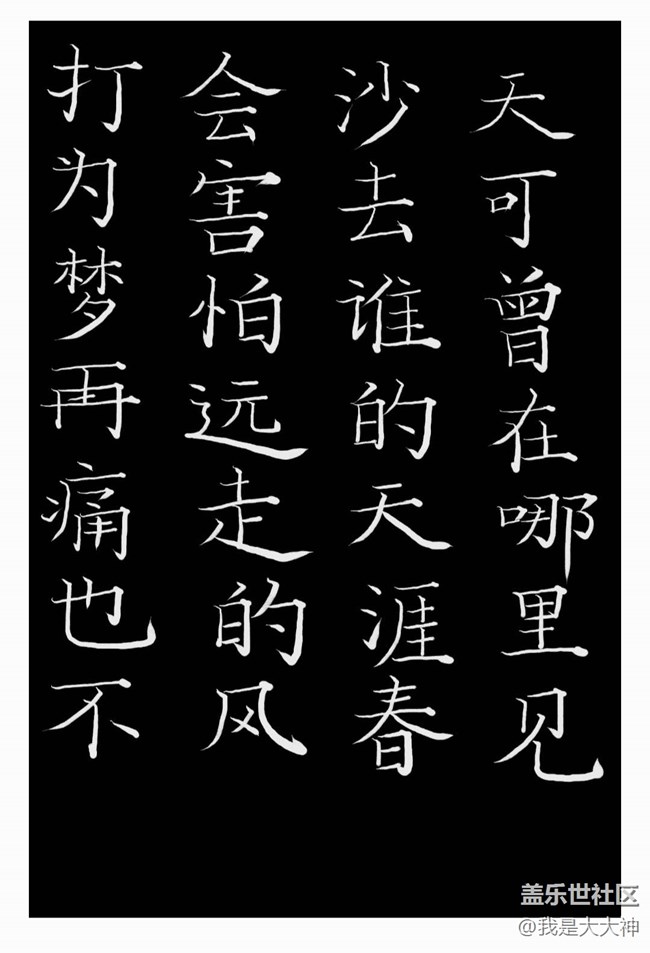 打为梦再痛也不
会害怕远走的风
沙去谁的天涯春
天可曾在哪里见
盖乐世社区
@我是大大神